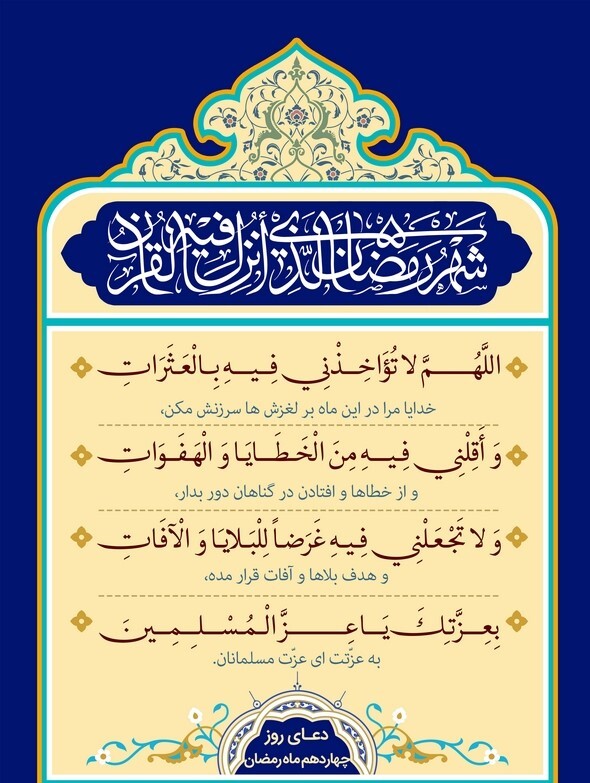 شَهْرُ رَمَضَانَ الَّذِي أُنْزِلَ فِيهِ الْقُرْآنُ
اللَّهُمَّ لا تُؤَاخِذْنِي فِيهِ بِالْعَثَرَاتِ
خدایا مرا در این ماه بر لغزش ها سرزنش مکن،
وَ أَقِلْنِي فِيهِ مِنَ الْخَطَايَا وَ الْهَفَوَاتِ
و از خطاها و افتادن در گناهان دور بدار،
وَ لا تَجْعَلْنِي فِيهِ غَرَضاً لِلْبَلايَا وَ الْآفَاتِ
و هدف بلاها و آفات قرار مده،
بِعِزَّتِكَ يَا عِزَّ الْمُسْلِمِينَ
به عزّتت ای عزّت مسلمانان.
دعای روز
چهاردهم ماه رمضان